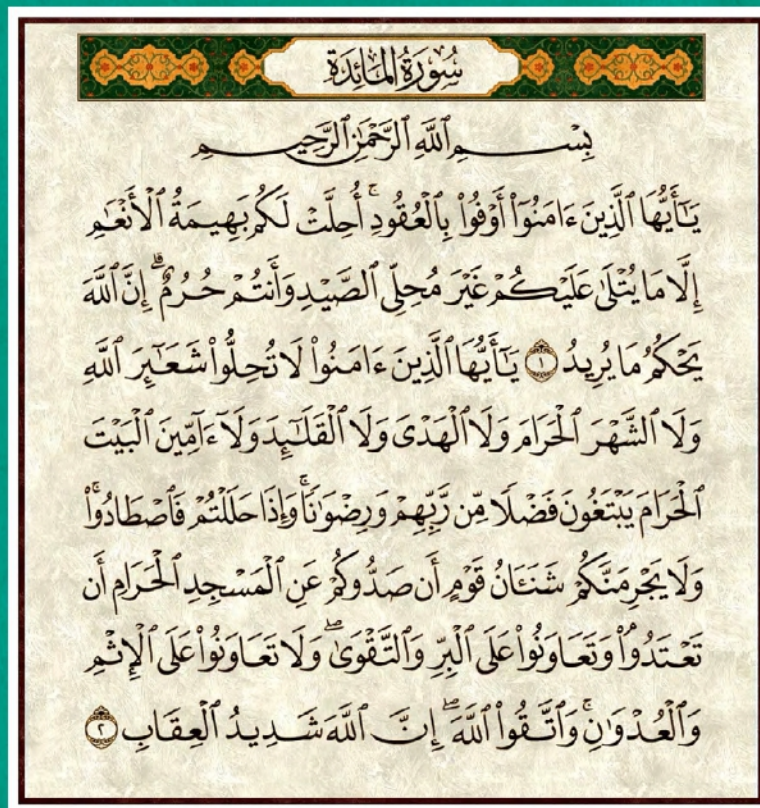 سُورَةُ المَائِدَةِ
بِسْمِ ٱللَّهِ ٱلرَّحْمَٰنِ ٱلرَّحِيمِ
يَٰٓأَيُّهَا ٱلَّذِينَ ءَامَنُوٓا۟ أَوْفُوا۟ بِٱلْعُقُودِ ۚ أُحِلَّتْ لَكُم بَهِيمَةُ ٱلْأَنْعَٰمِ
إِلَّا مَا يُتْلَىٰ عَلَيْكُمْ غَيْرَ مُحِلِّى ٱلصَّيْدِ وَأَنتُمْ حُرُمٌ ۗ إِنَّ ٱللَّهَ
يَحْكُمُ مَا يُرِيدُ ١ يَٰٓأَيُّهَا ٱلَّذِينَ ءَامَنُوا۟ لَا تُحِلُّوا۟ شَعَٰٓئِرَ ٱللَّهِ
وَلَا ٱلشَّهْرَ ٱلْحَرَامَ وَلَا ٱلْهَدْىَ وَلَا ٱلْقَلَٰٓئِدَ وَلَآ ءَآمِّينَ ٱلْبَيْتَ
ٱلْحَرَامَ يَبْتَغُونَ فَضْلًا مِّن رَّبِّهِمْ وَرِضْوَٰنًا ۚ وَإِذَا حَلَلْتُمْ فَٱصْطَادُوا۟ ۚ
وَلَا يَجْرِمَنَّكُمْ شَنَـَٔانُ قَوْمٍ أَن صَدُّوكُمْ عَنِ ٱلْمَسْجِدِ ٱلْحَرَامِ أَن
تَعْتَدُوا۟ ۘ وَتَعَاوَنُوا۟ عَلَى ٱلْبِرِّ وَٱلتَّقْوَىٰ ۖ وَلَا تَعَاوَنُوا۟ عَلَى ٱلْإِثْمِ
وَٱلْعُدْوَٰنِ ۚ وَٱتَّقُوا۟ ٱللَّهَ ۖ إِنَّ ٱللَّهَ شَدِيدُ ٱلْعِقَابِ ٢